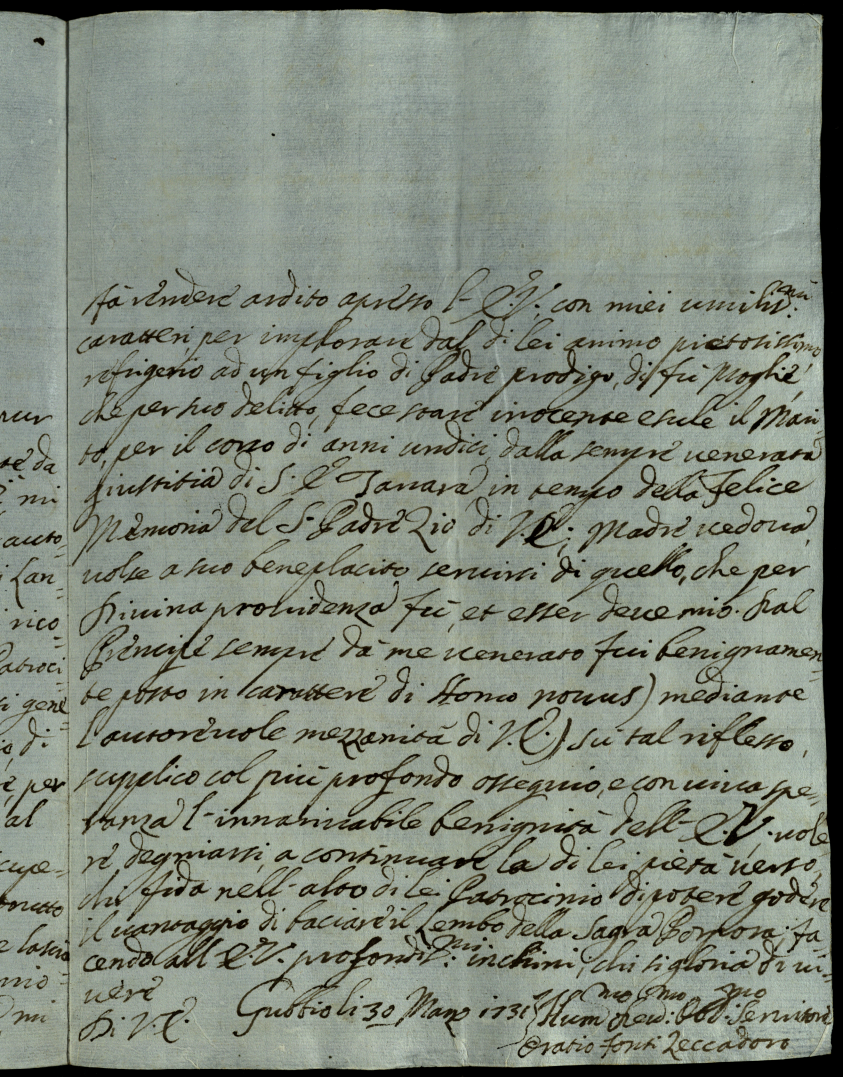 fà rendere ardito apresso l'E.V. con miei umiliss:mi
caratteri per implorare dal di lei animo pietosissimo
refrigerio ad un figlio di Padre prodigo, di fù Moglie,
che per suo delitto, fece stare inocente esule il Mari=
to, per il corso di anni undici, dalla sempre venerata
Giustitia di S. E. Tanara in tempo della Felice
Memoria del S. Padre Zio di V.E.; Madre vedova,
volse a suo beneplacito servirsi di quello, che per
Divina providenza fù, et esser deve mio. Dal
Prencipe sempre dà me venerato fui benignamen=
te posto in carattere di Homo novus) mediante
l'autorevole mezzanità di V.E.) sù tal riflesso,
supplico col più profondo ossequio, e con viva spe=
ranza l'innarivabile benignità dell'E.V. vole
re degniarsi, a continuare la di lei pietà verso,
chi fida nell'alto di lei Patrocinio di potere godere
il vantaggio di baciare il Lembo della Sagra Porpora; fa
cendo all'E.V. profondiss:mi inchini, chi si gloria di vi=
vere
Di V.E. Gubbio li 30 Marzo 1731
Hum:mo Dev:mo Obb:mo Servitore
Oratio Fonti Zeccadoro
pur
te da
mi
auto=
Lan=
rico=
Patroci=
ti gene=
di
per
al
cupe=
e lascia
mio=
mi